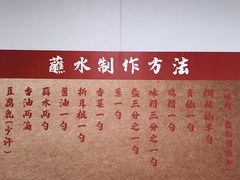 蘸水制作方法
糊辣椒半勺
青椒一勺
鸡精一勺
味精三分之一勺
盐三分之一勺
葱一勺
香菜一勺
折耳根一勺
酱油一勺
蘸水两勺
香油两滴
豆腐乳(少许)